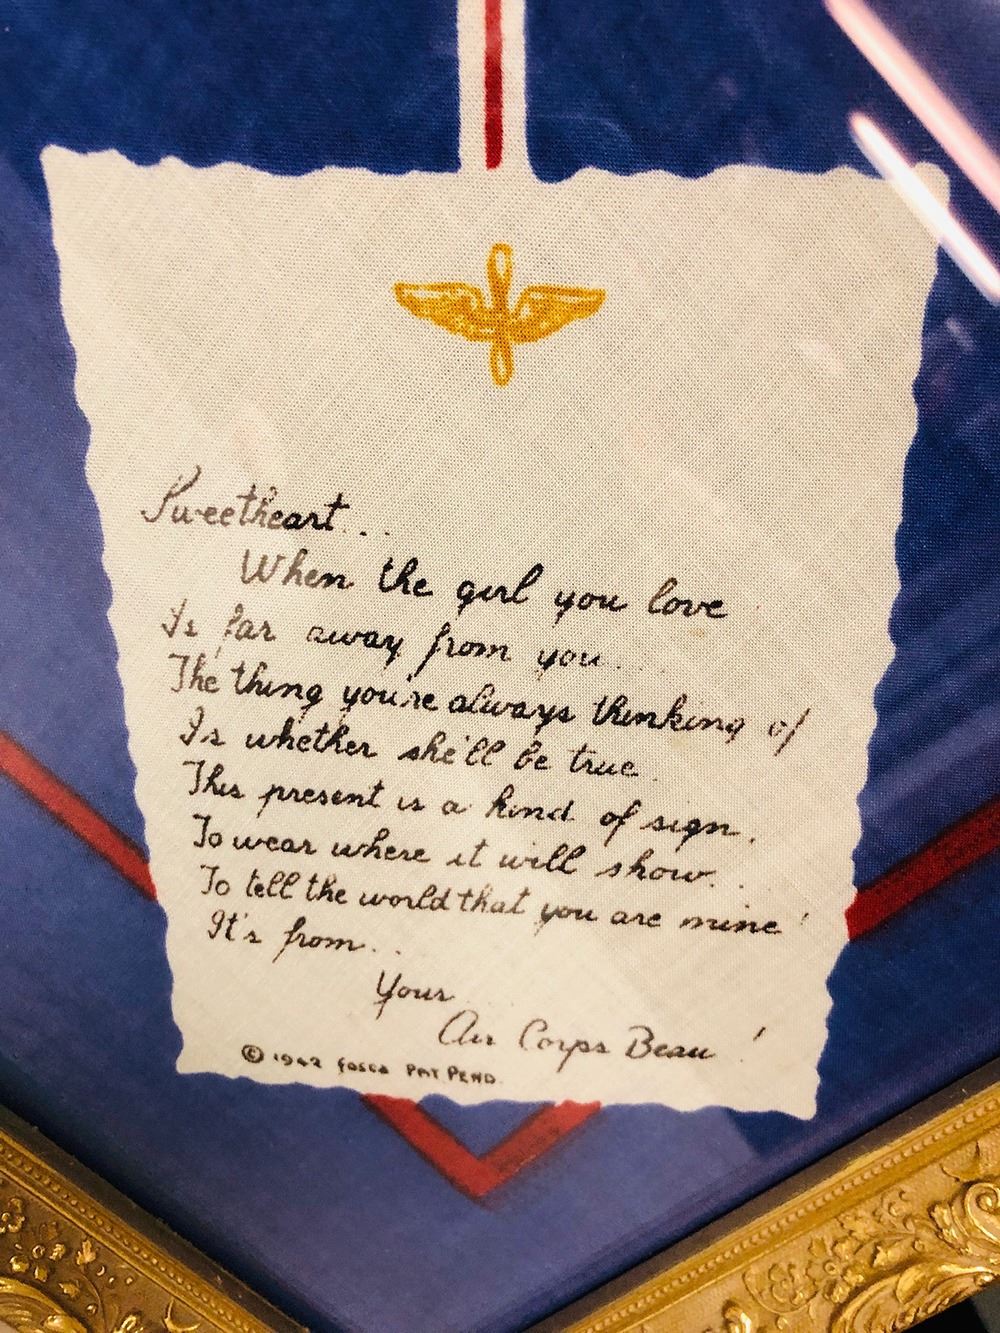 Sweetheart...
When the girl you love
Is far away from you..
The thing you're always thinking of
Is whether she'll be true.
This present is a kind of sign.
To wear where it will show...
To tell the world that you are mine!
It's from...
Your
Air Corps Beau!
© 1942 Fosca PAT PEND.